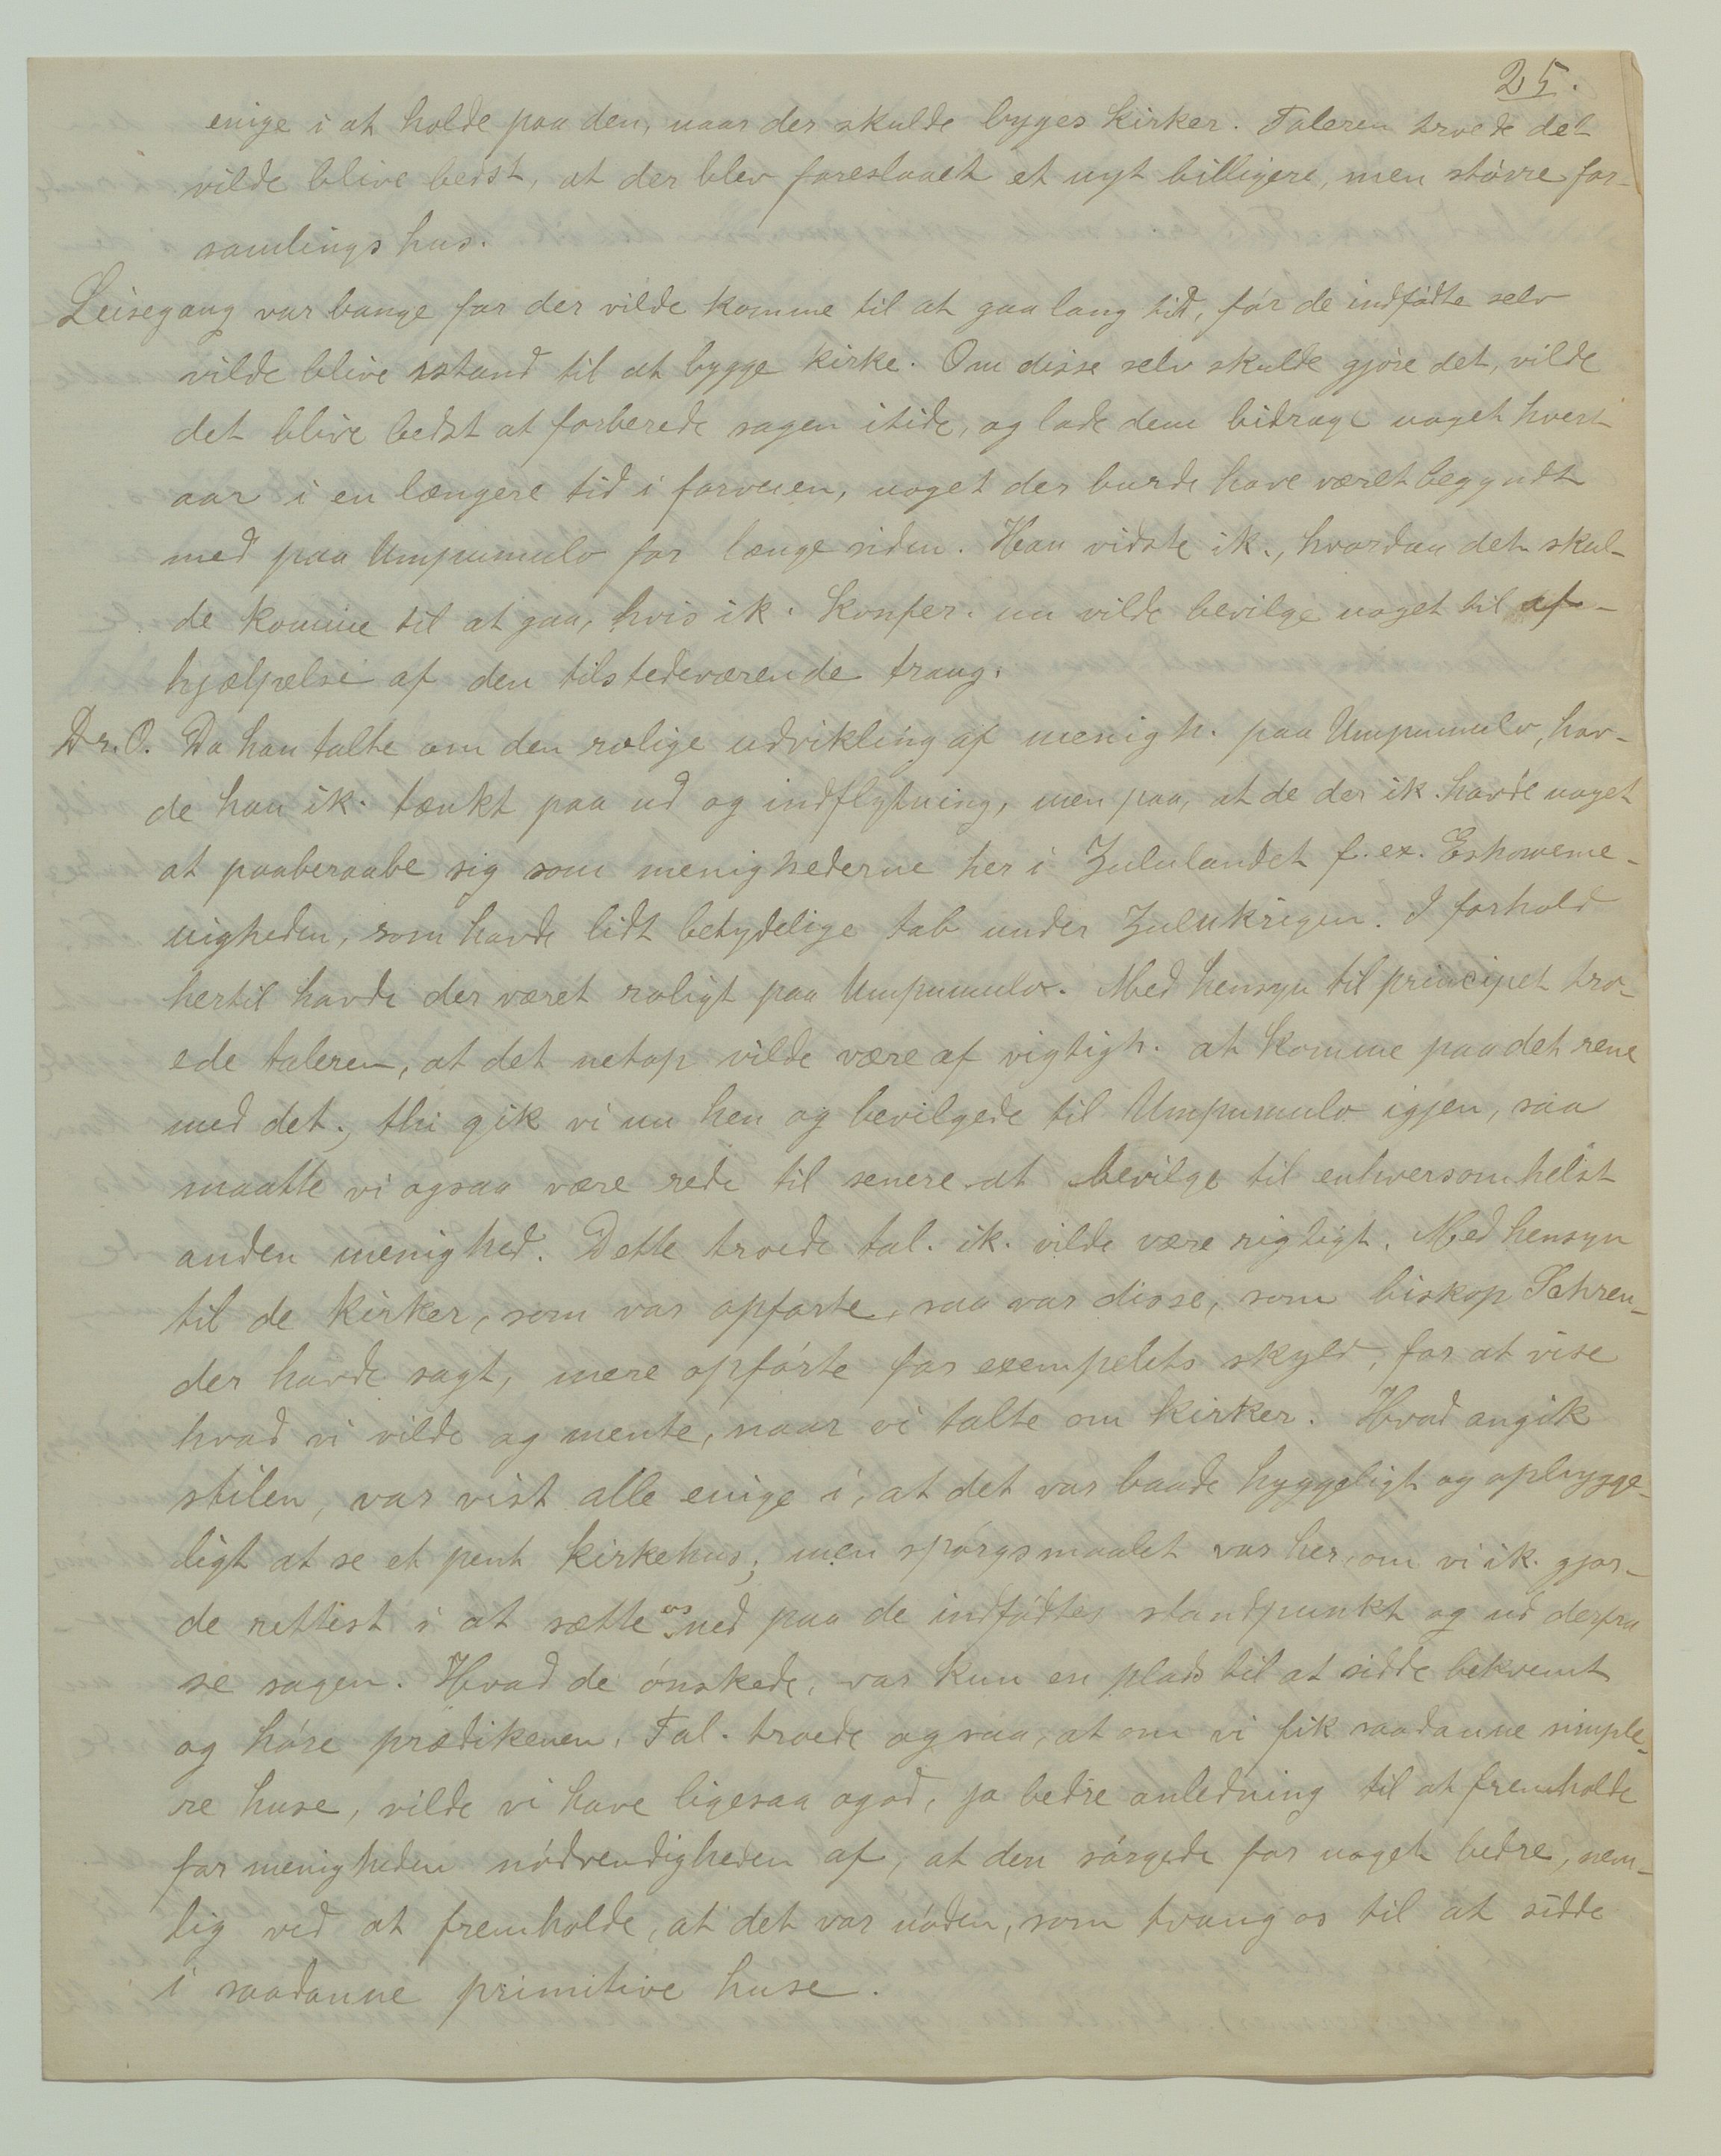 25.
enige i at holde paa den, naar der skulde byges kirker. Taleren troede det
vilde blive bedst, at der blev foreslaaet et nyt billigere, men større for-
samlingshus.
Leisegang var bange for der vilde komme til at gaa lang tid, før de indfødte selv
vilde blive istand til at bygge kirke. Om disse selv skulde gjøre det, vilde
det blive bedst at forberede sagen itide, og lade dem bidrage noget hvert
aar i en længere tid i forveien, noget der burde have været begyndt
med paa Umpumulo for længe siden. Han vidste ik., hvordan det skul-
de komme til at gaa, hvis ik. Konfer. nu vilde bevilge noget til af-
hjælpelse af den tilstedeværende trang.
Dr. O. Da han talte om den rolige udvikling af menigh. paa Umpumulo, hav-
de han ik. tænkt paa ud og indflytning, men paa, at de der ik. havde noget
at paaberaabe sig som menighederne her i Zululandet f. ex. Eshoweme-
nigheden, som havde lidt betydelige tab under Zulukrigen. I forhold
hertil havde der været roligt paa Umpumulo. Med hensyn til principet tro-
ede taleren, at det netop vilde være af vigtigh. at komme paa det rene
med det., thi gik vi nu hen og bevilgede til Umpumulo igjen, saa
maatte vi ogsaa være rede til senere at bevilge til enhversomhelst
anden menighed. Dette troede tal. ik. vilde være rigtigt. Med hensyn
til de kirker, som var opførte, saa var disse, som biskop Schreu-
der havde sagt, mere opførte for exempelets skyld, for at vise
hvad vi vilde og mente, naar vi talte om kirker. Hvad angik
stilen, var vist alle enige i, at det var baade hyggeligt og opbygge-
ligt at se et pent kirkehus; men spørgsmaalet var her, om vi ik. gjor-
de rettest i at sætte os ned paa de indfødtes standpunkt og ud derfra
se sagen. Hvad de ønskede, var kun en plads til at sidde bekvemt
og høre prædikenen. Tal. troede ogsaa, at om vi fik saadanne simple-
re huse, vilde vi have ligesaa god, ja bedre anledning til at fremholde
for menigheden nødvendigheden af, at den sørgede for noget bedre, nem-
lig ved at fremholde, at det var nøden, som tvang os til at sidde
i saadanne primitive huse.